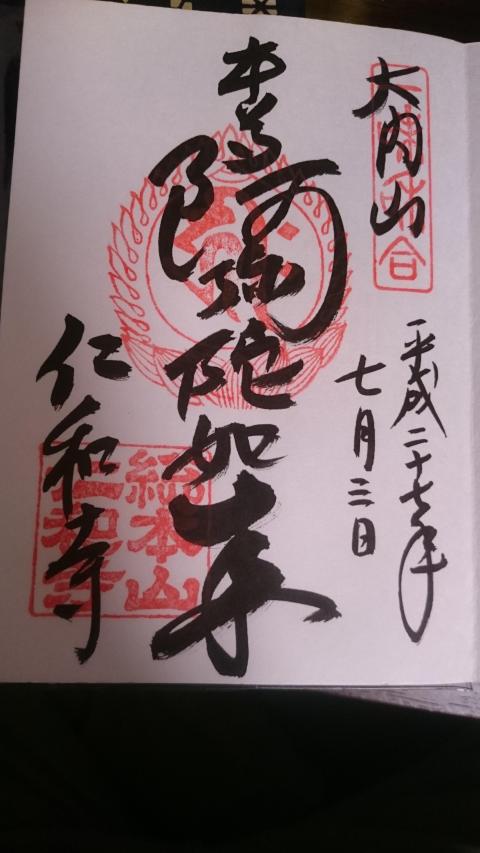 大内山
平成二十七年
七月三日
本尊
阿弥陀如来
仁和寺
総本山
仁和寺